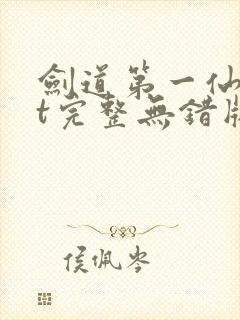 劍道第一仙
t完整無錯版
侯佩岑